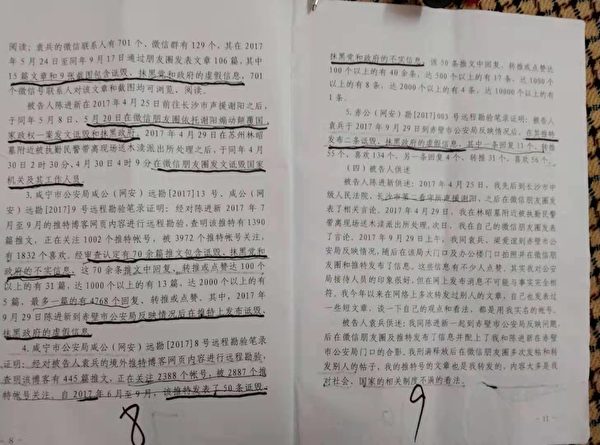 阅读；袁兵的微信联系人有701个、微信群有129个，其在2017
年5月24日至同年9月17日通过朋友圈发表文章106篇，其中
15篇文章和9张截图包含诋毁、抹黑党和政府的虚假信息，701
个微信号联系人对该文章和截图均可浏览、阅读。
被告人陈进新在2017年4月25日前往长沙市声援谢阳之后，
于同年5月8日、5月20日在微信朋友圈依托谢阳煽动颠覆国
家政权一案发文诋毁和抹黑政府。2017年4月29日在苏州林昭
墓附近被执勤民警带离现场送木渎派出所处理之后，于同年4月
30日2时30分、4月30日4时9分在微信朋友圈发文诋毁国家
机关及其工作人员。
3.咸宁市公安局咸公（网安）远勘[2017]13号、咸公（网
安）远勘[2017]9号远程勘验笔录证明：经对陈进新2017年7
月至9月的推特博客网页内容进行远程勘验，查明该推特有1390
篇推文，正在关注1002个推特帐号，被3972个推特帐号关注，
有1832个喜欢。经审查认定有70余篇推文包含诋毁、抹黑党和
政府的不实信息。这70余条推文中回复、转推或点赞达100个
以上的有31篇，达1000个以上的有13篇，达2000个以上的有
5篇，最多一篇的有4768个回复、转推或点赞。其中，2017年
9月29日陈进新到赤壁市公安局反映情况后在推特上发布诋毁、
抹黑政府的虚假信息。
4.咸宁市公安局咸公（网安）远勘[2017]8号远程勘验笔录
证明：经对被告人袁兵的境外推特博客网页内容进行远程勘验，
查明该博客有445篇推文，正在关注2388个帐号，被2887个推
特帐号关注，自2017年6月至9月，该推特发表了50条诋毁、
- 8 -
8
抹黑党和政府的不实信息。该50条推文中回复、转推或点赞达
100个以上的有40余条，达500个以上的有17条，达1000个
以上的有8条，达2000个以上的有4条，达10000个以上的有
1条。
5.赤公（网安）勘[2017]003号远程勘验笔录证明：被告
人袁兵于2017年9月29日到赤壁市公安局反映情况后，在其推特
发布二条诋毁、抹黑政府的虚假信息，其中一条回复11个、转推
55个、喜欢134个，另一条回复4个、转推31个、喜欢56个。
（四）被告人供述
被告人陈进新供述：2017年4月25日，我先后到长沙市中
级人民法院、长沙市第二看守所声援谢阳，之后在微信朋友圈发
表了相关言论。2017年4月29日，我在林昭墓附近被执勤民警
带离现场送木渎派出所处理，次日，我在自己的微信朋友圈发表
了言论。2017年9月29日上午，我同袁兵、梁爱莲到赤壁市公
安局反映情况，随后在该局大门口及办公楼门口拍照并在微信朋
友圈和推特发布了信息。这些信息有不少人点赞。其实我对公安
局接待人员的印象很好，但在网上发布消息不可能与事实完全相
符。我今年以来在网络上多次转发过别人的文章，自己也发表过
一些短文章，谈一下自己的观点和看法，都是用我实名的帐号。
被告人袁兵供述：我同陈进新一起到赤壁市公安局反映问题
后在微信朋友圈和推特发布了信息并配上了我和陈进新在赤壁
市公安局门口的合影。我刑满释放后在微信朋友圈多次发帖和转
发别人的帖子，我的推特号的文章也是我转发的，内容大多是我
对社会、国家的相关制度不满的看法。
- 11 -
9